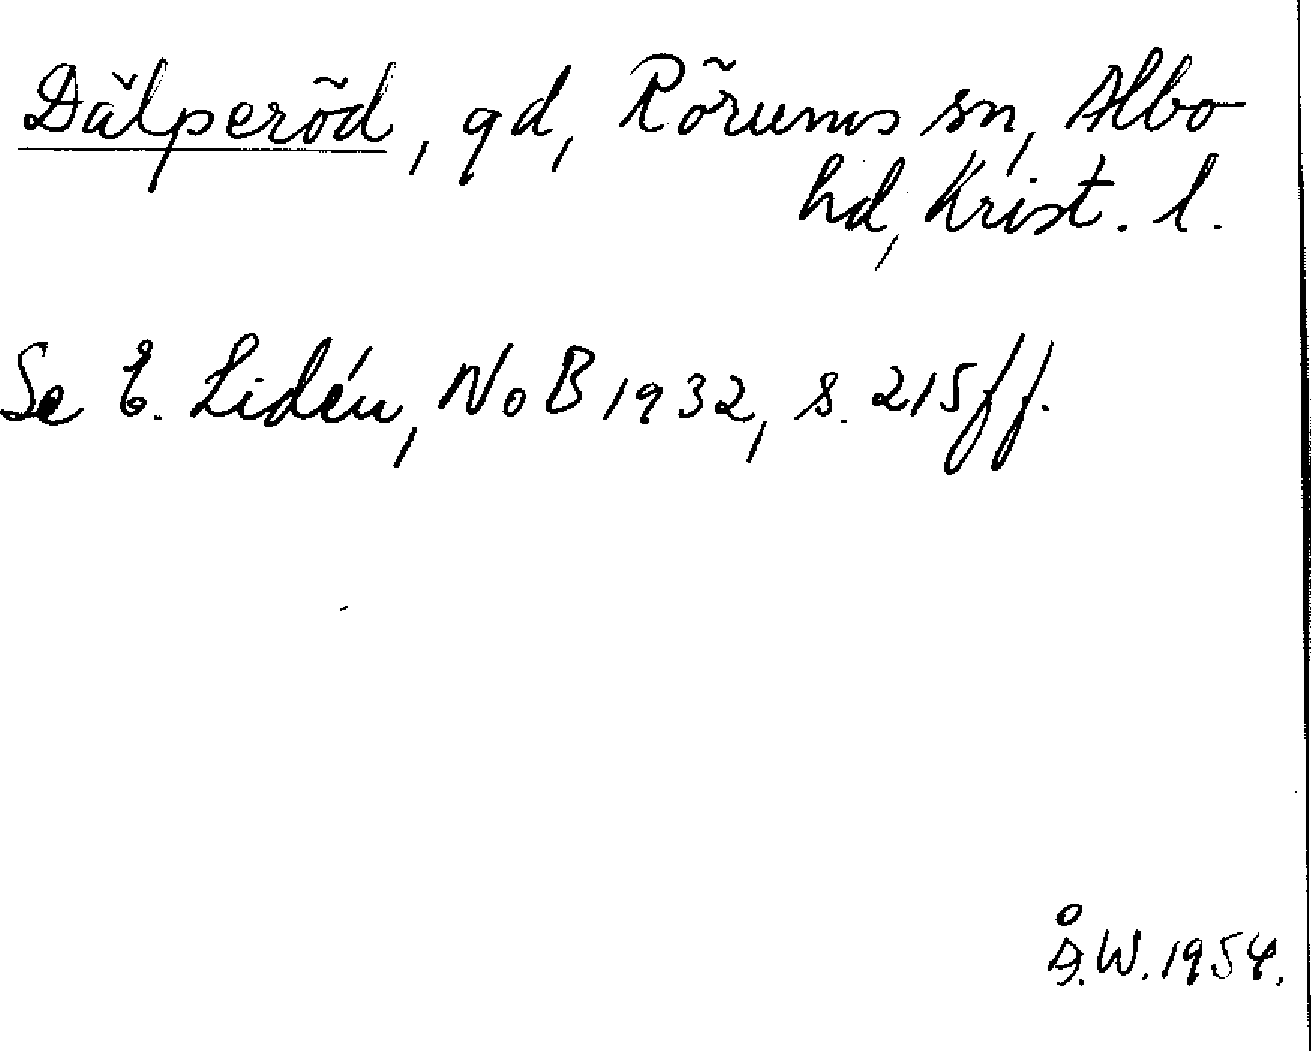 Dälperöd, gd, Rörums sn, Albo
hd, Krist. l.
Se E. Lidén, NoB 1932, s. 215ff.
Å.W. 1954.